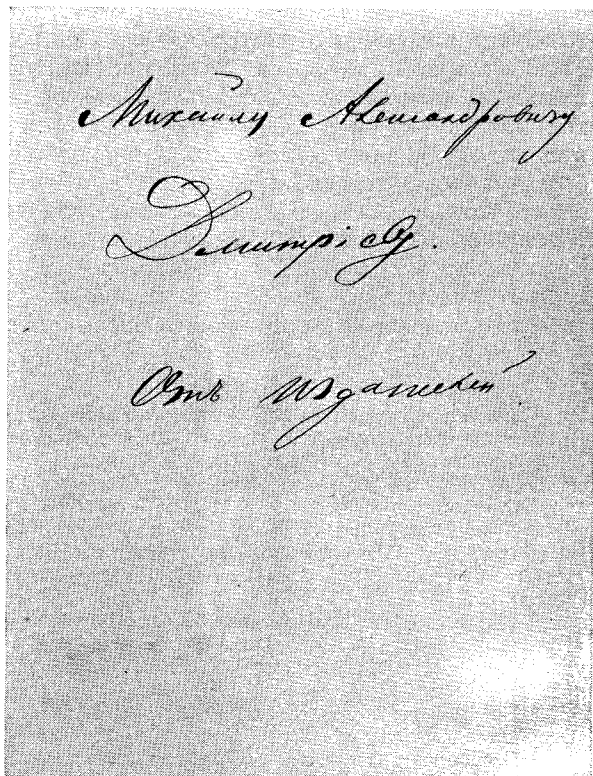 Михайлу Александровичу
Дмитріеву.
Отъ издателей